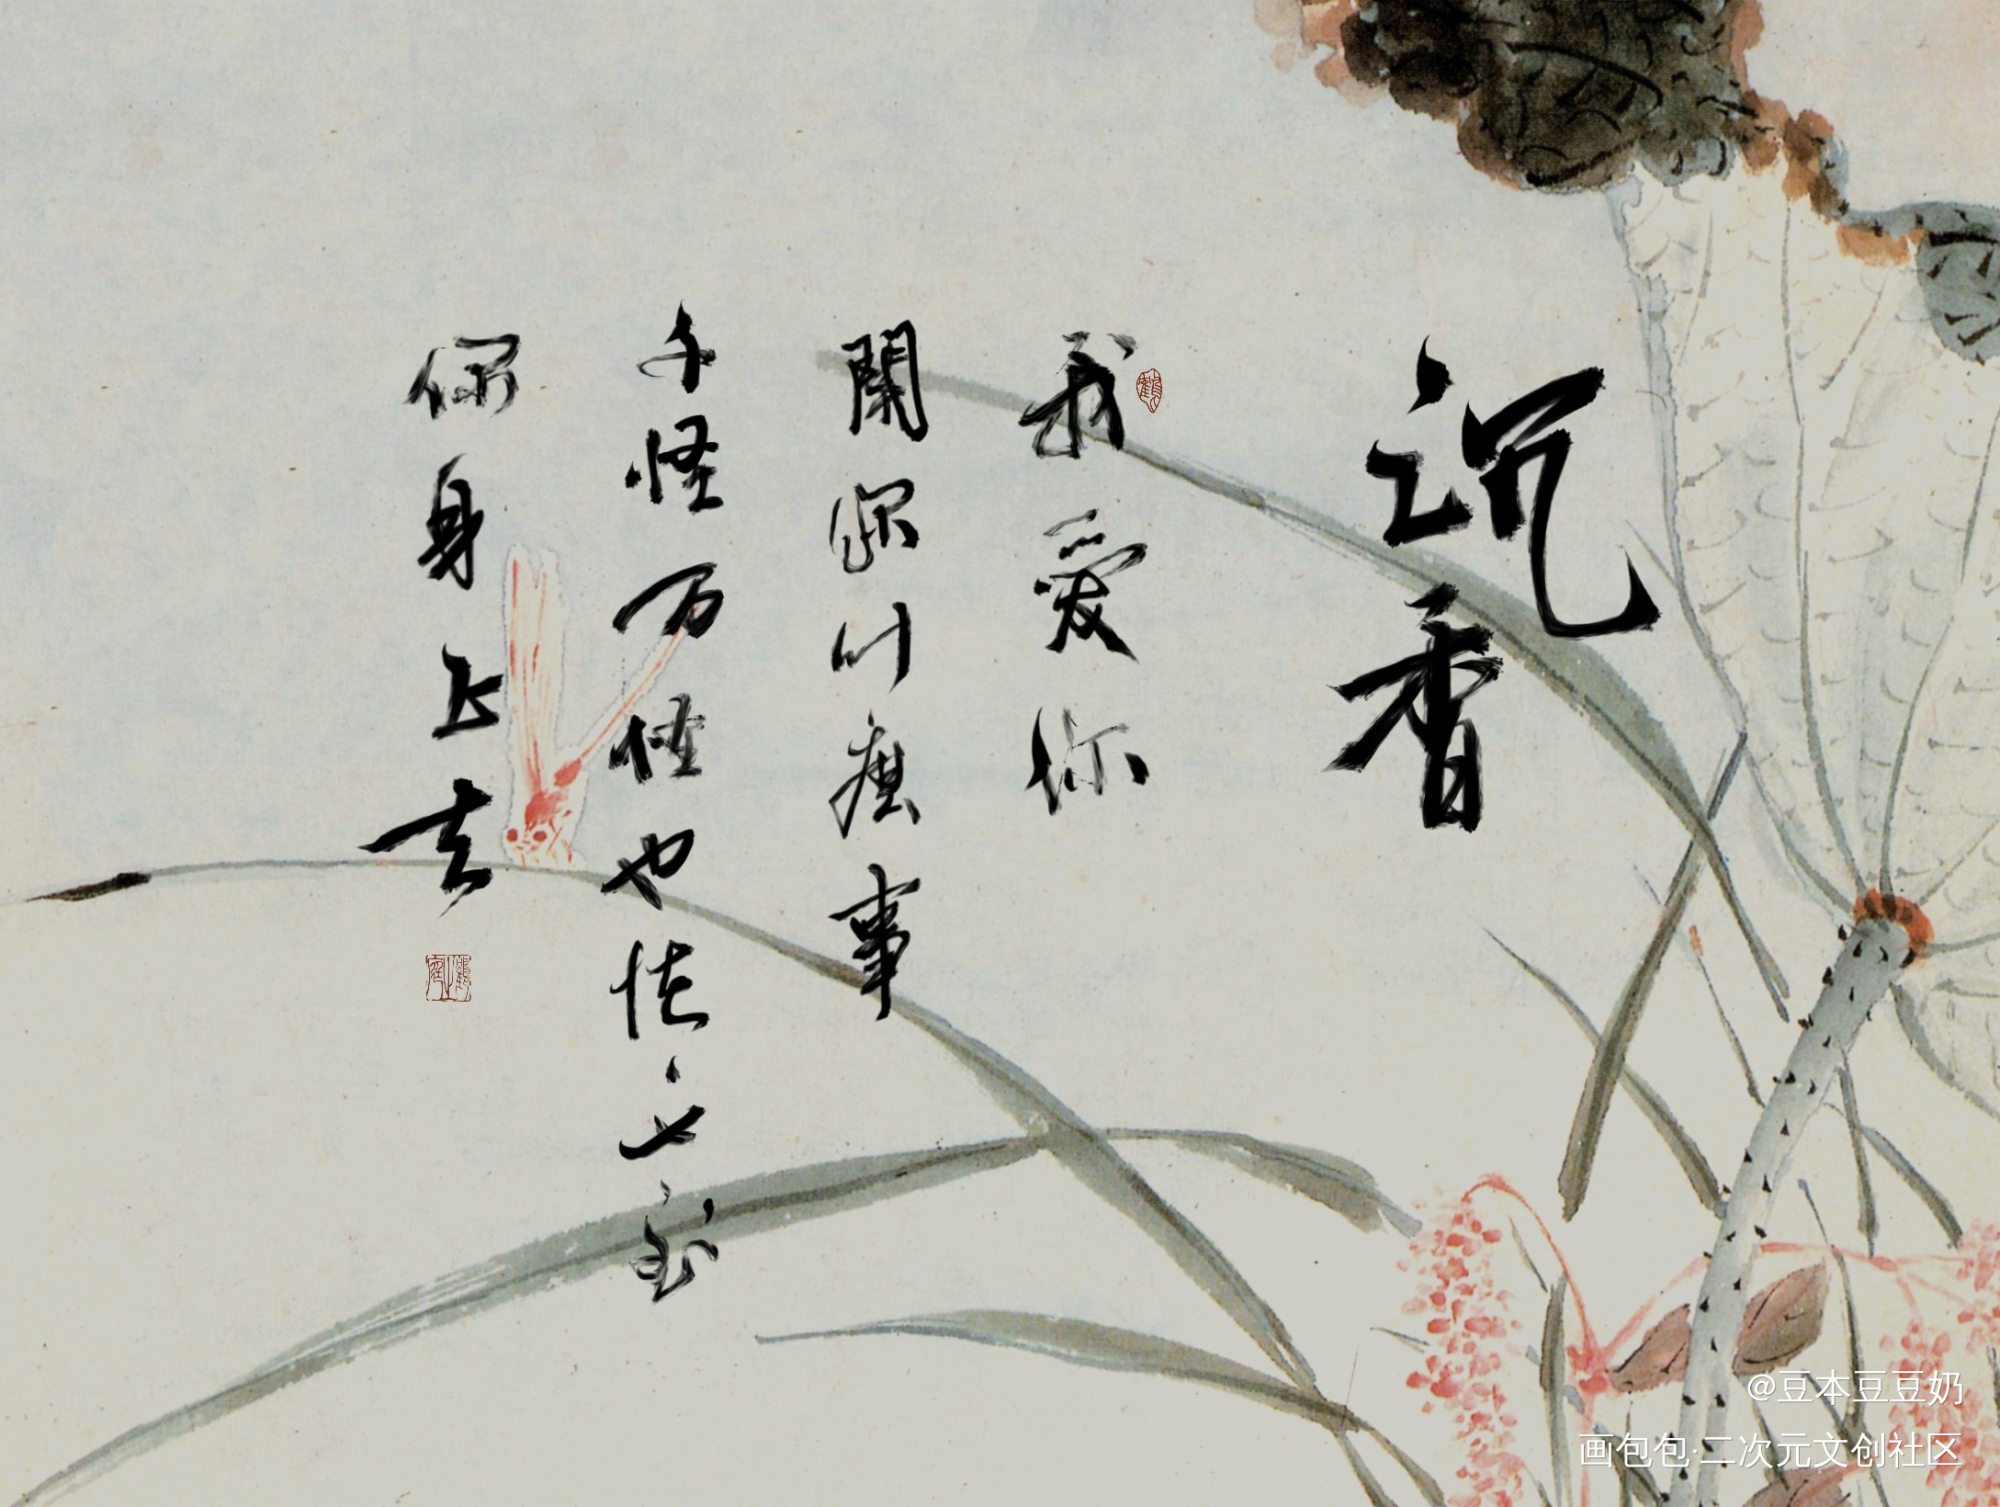 沉香
我爱你
關你什麼事
千怪万怪也怪不到
你身上去
@豆本豆豆奶
画包包·二次元文创社区